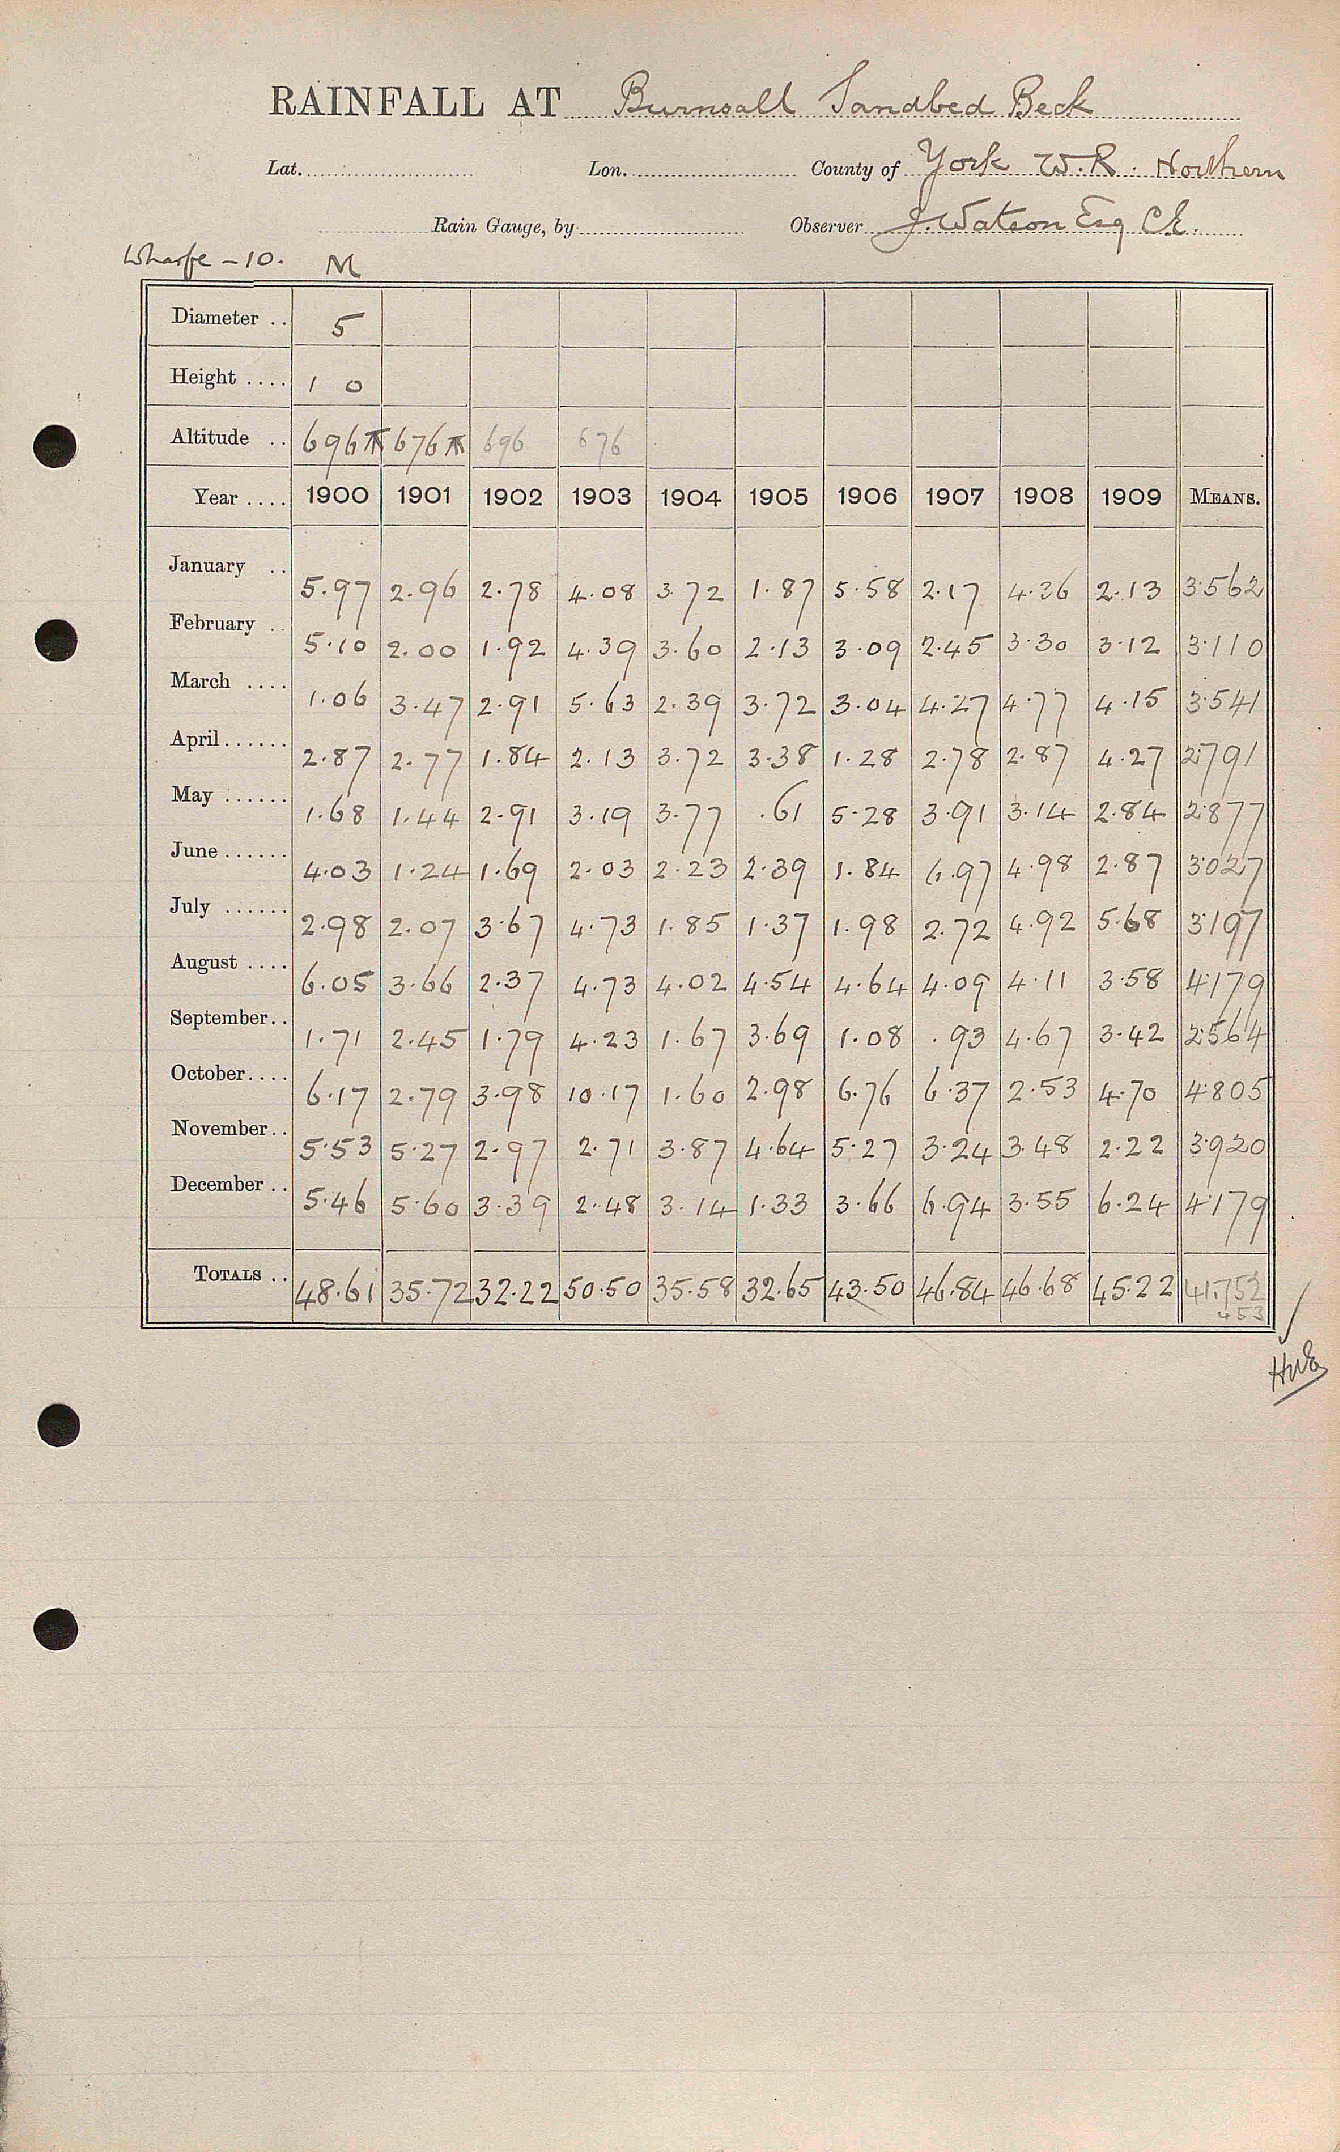 RAINFALL AT Burnsall Sandbed Beck
Lat. Lon. County of York W.R. Northern
Rain Gauge, by Observer J. Watson Esq CE.
Wharfe - 10. M
Diameter .. 5
Height .... 1 0
Altitude .. 696 T 676 T 696 676
Year .... 1900 1901 1902 1903 1904 1905 1906 1907 1908 1909 MEANS.
January .. 5.97 2.96 2.78 4.08 3.72 1.87 5.58 2.17 4.36 2.13 3.562
February .. 5.10 2.00 1.92 4.39 3.60 2.13 3.09 2.45 3.30 3.12 3.110
March .... 1.06 3.47 2.91 5.63 2.39 3.72 3.04 4.27 4.77 4.15 3.541
April ...... 2.87 2.77 1.84 2.13 3.72 3.38 1.28 2.78 2.87 4.27 2.791
May ...... 1.68 1.44 2.91 3.19 3.77 .61 5.28 3.91 3.14 2.84 2.877
June ...... 4.03 1.24 1.69 2.03 2.23 2.39 1.84 6.97 4.98 2.87 3.027
July ...... 2.98 2.07 3.67 4.73 1.85 1.37 1.98 2.72 4.92 5.68 3.197
August .... 6.05 3.66 2.37 4.73 4.02 4.54 4.64 4.09 4.11 3.58 4.179
September .. 1.71 2.45 1.79 4.23 1.67 3.69 1.08 .93 4.67 3.42 2.564
October .... 6.17 2.79 3.98 10.17 1.60 2.98 6.76 6.37 2.53 4.70 4.805
November .. 5.53 5.27 2.97 2.71 3.87 4.64 5.27 3.24 3.48 2.22 3.920
December .. 5.46 5.60 3.39 2.48 3.14 1.33 3.66 6.94 3.55 6.24 4.179
TOTALS .. 48.61 35.72 32.22 50.50 35.58 32.65 43.50 46.84 46.68 45.22 41.752
453